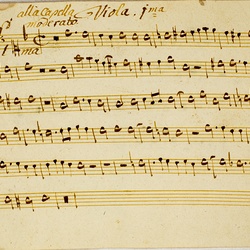 alla Capella Viola. 1ma
moderato